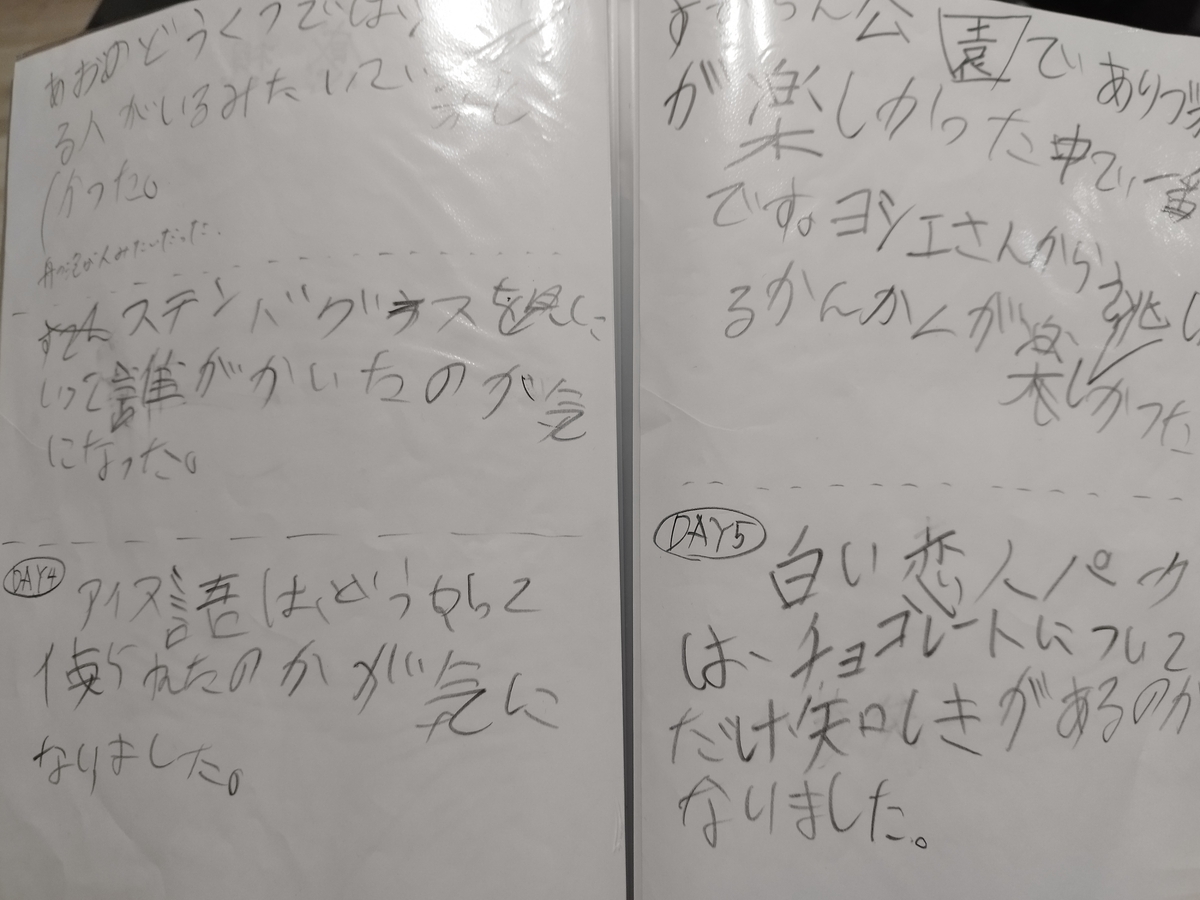 あおのどうくつでは、
る人がいるみたいでい
かった。
ステンバグラスを見に
いって誰がかいたのか気
になった。
DAY4
アイヌ語は、どうやって
使られたのかが気に
なりました。
公園でありづ
が楽しかった中で、一番
です。ヨシエさんから逃
るかんかくが楽しかった
DAY5
白い恋人パーク
は、チョコレートについて
だけ知しきがあるのか
なりました。